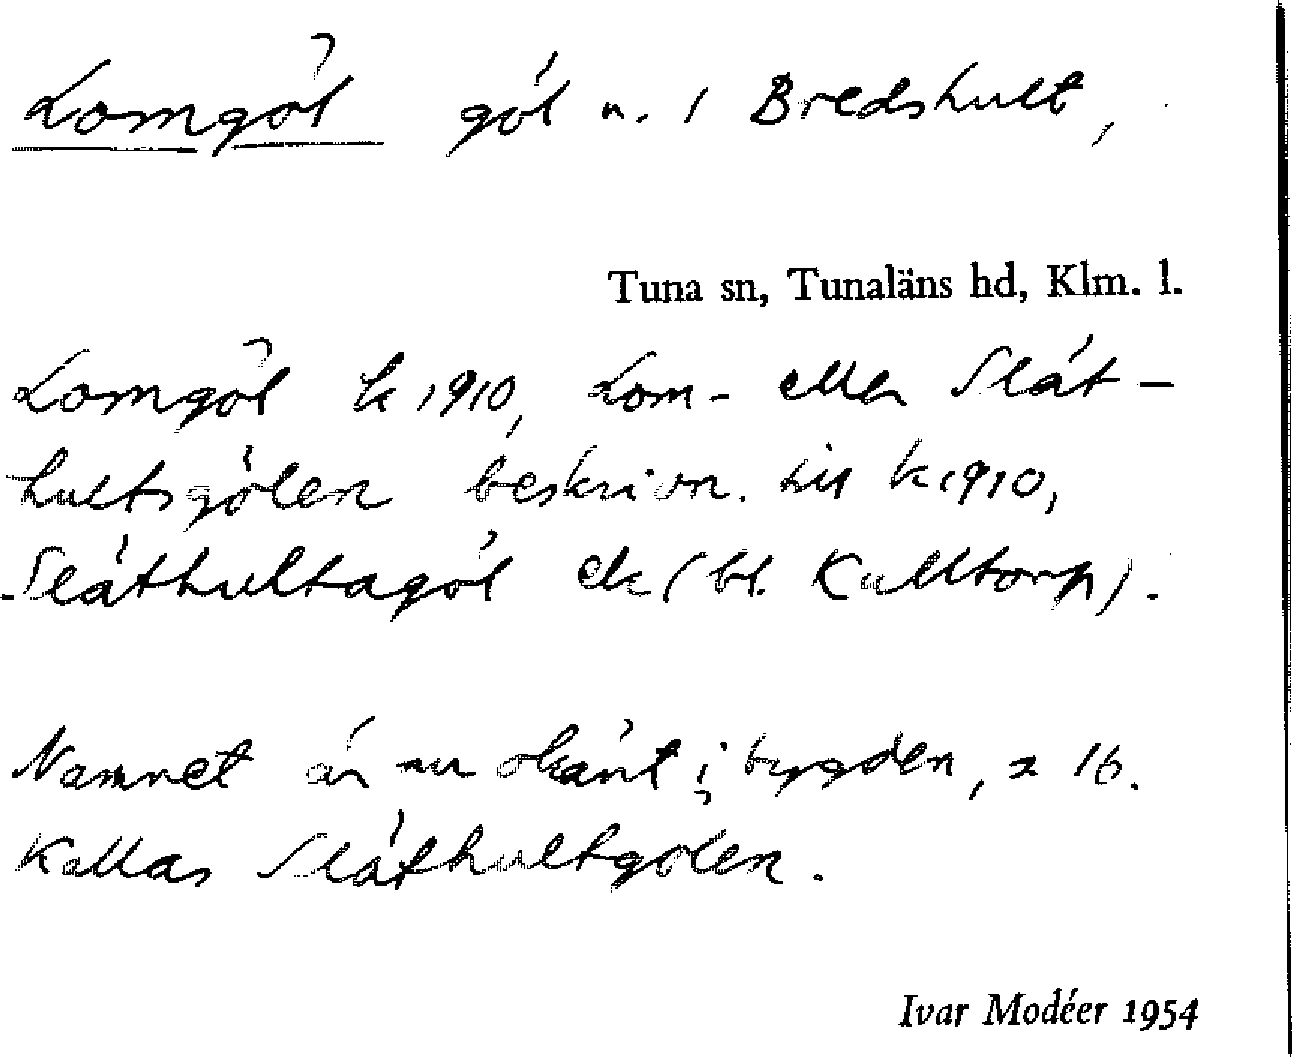 Lomgöl göl n. i Bredshult,
Tuna sn, Tunaläns hd, Klm. l.
Lomgöl k 1910, Lom- eller Slät-
hultsgölen beskrivn. till k 1910,
Släthultagöl ek (bl. Kulltorp).
Namnet är nu okänt i bygden,
Kallas Släthultgölen.
Ivar Modéer 1954